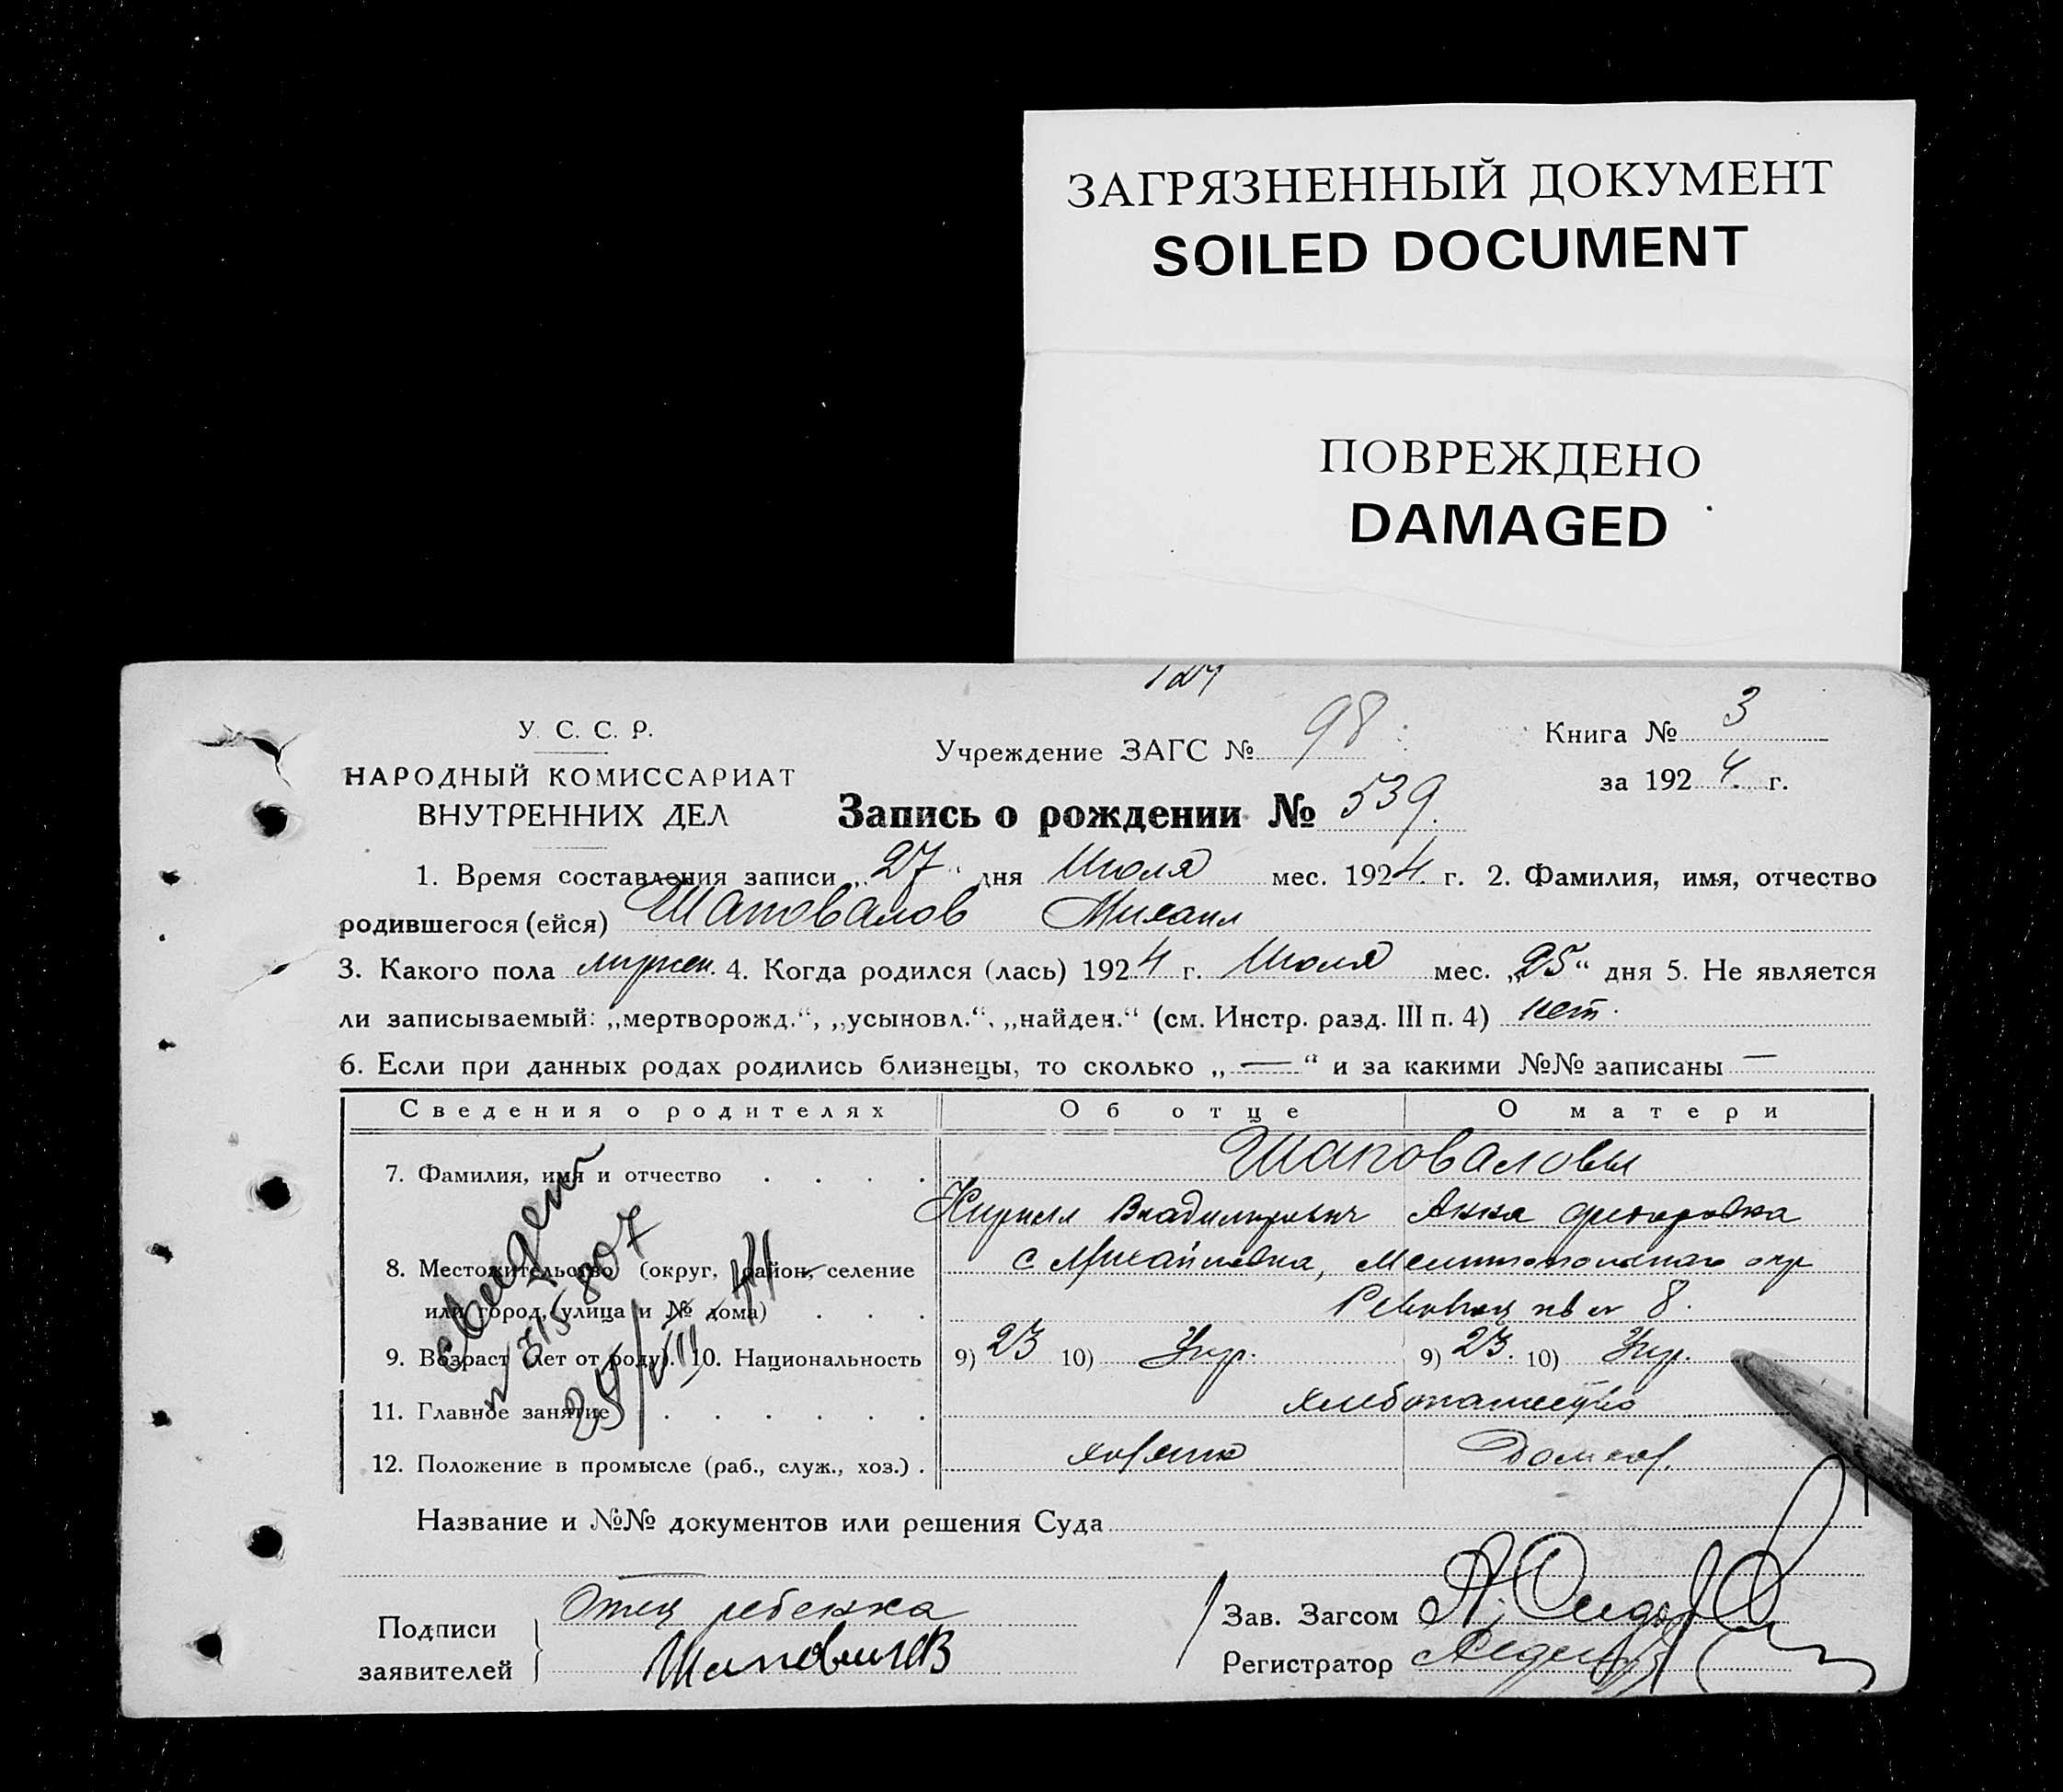 ЗАГРЯЗНЕННЫЙ ДОКУМЕНТ
SOILED DOCUMENT
ПОВРЕЖДЕНО
DAMAGED
У. С. С. Р.
НАРОДНЫЙ КОМИССАРИАТ
ВНУТРЕННИХ ДЕЛ
Учреждение ЗАГС № 98
Книга № 3
за 1924 г.
Запись о рождении № 539.
1. Время составления записи „27“ дня Июля мес. 1924 г. 2. Фамилия, имя, отчество
родившегося (ейся) Шаповалов Михаил
3. Какого пола мужск. 4. Когда родился (лась) 1924 г. Июля мес. „25“ дня 5. Не является
ли записываемый: „мертворожд.“, „усыновл.“, „найден.“ (см. Инстр. разд. III п. 4) нет.
6. Если при данных родах родились близнецы, то сколько „—“ и за какими №№ записаны —
Сведения о родителях Об отце О матери
7. Фамилия, имя и отчество . . . . Шаповаловы
Кирилл Владимирович Анна Федоровна
8. Местожительство (округ, район, селение с Михайловка, Мелитопольского окр
или город, улица и № дома) . . . 8.
9. Возраст (лет от роду). 10. Национальность 9) 23 10) Укр. 9) 23. 10) Укр.
11. Главное занятие . . . . . . хлебопашество
12. Положение в промысле (раб., служ., хоз.) . хозяин Домхоз.
Название и №№ документов или решения Суда
Подписи заявителей
Отец ребенка
Шаповалов
Зав. Загсом
Регистратор